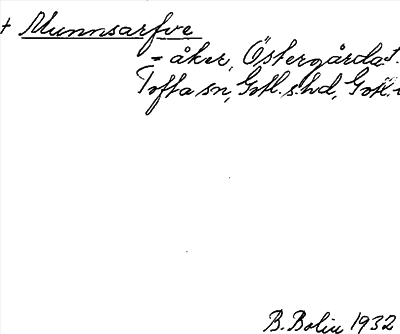 + Munnsarfve
- åker, Östergårda t.
Tofta sn, Gotl. s. hd, Gotl.
B. Bolin 1932